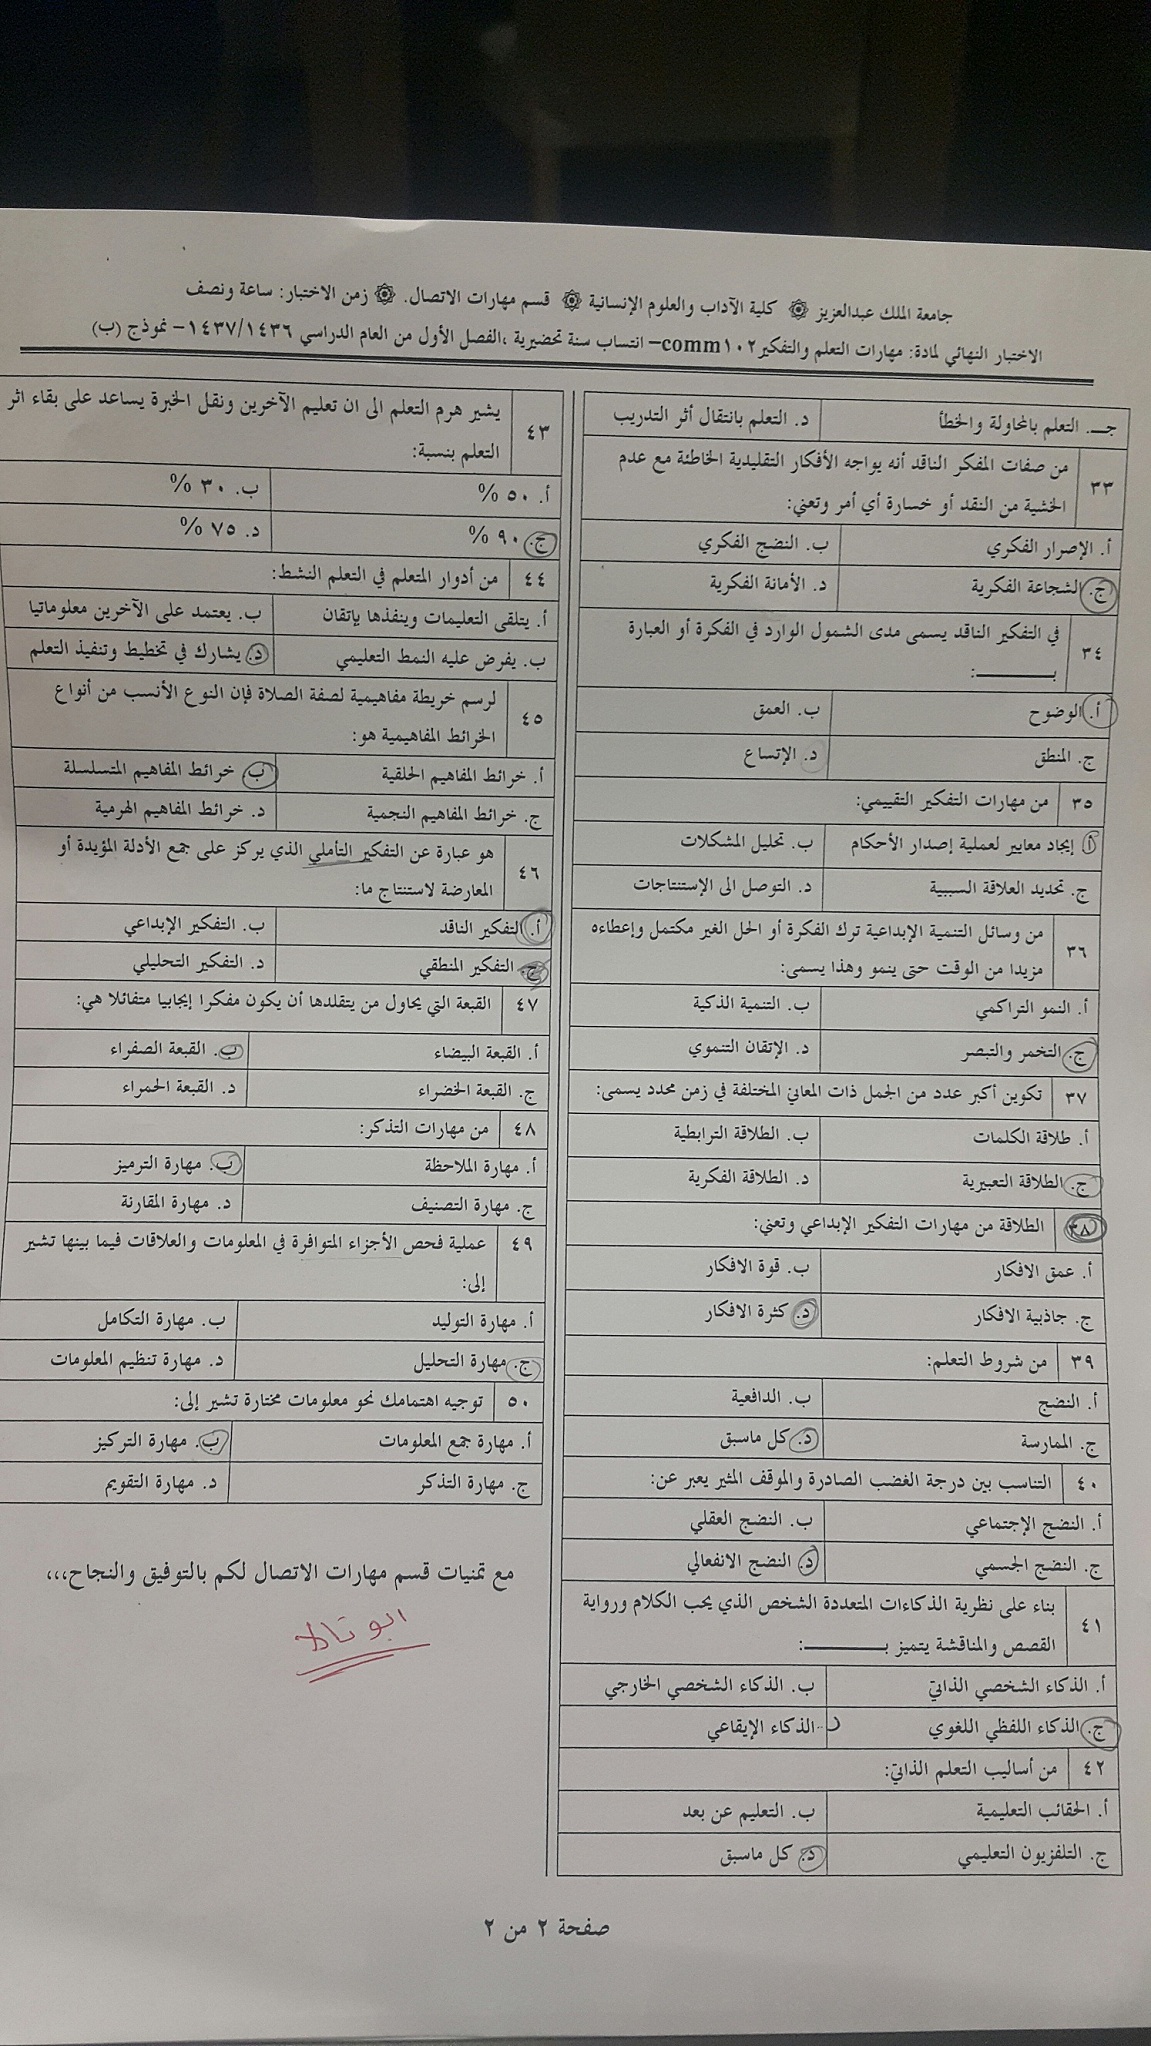 جامعة الملك عبدالعزيز ۞ كلية الآداب والعلوم الإنسانية ۞ قسم مهارات الاتصال. ۞ زمن الاختبار: ساعة ونصف
الاختبار النهائي لمادة: مهارات التعلم والتفكير comm١٠٢– انتساب سنة تحضيرية ،الفصل الأول من العام الدراسي ١٤٣٧/١٤٣٦– نموذج (ب)
جـ. التعلم بالمحاولة والخطأ د. التعلم بانتقال أثر التدريب
٣٣ من صفات المفكر الناقد أنه يواجه الأفكار التقليدية الخاطئة مع عدم
الخشية من النقد أو خسارة أي أمر وتعني:
أ. الإصرار الفكري ب. النضج الفكري
ج. الشجاعة الفكرية د. الأمانة الفكرية
٣٤ في التفكير الناقد يسمى مدى الشمول الوارد في الفكرة أو العبارة
بـــــــــــ:
أ. الوضوح ب. العمق
ج. المنطق د. الإتساع
٣٥ من مهارات التفكير التقييمي:
أ إيجاد معايير لعملية إصدار الأحكام ب. تحليل المشكلات
ج. تحديد العلاقة السببية د. التوصل الى الإستنتاجات
٣٦ من وسائل التنمية الإبداعية ترك الفكرة أو الحل الغير مكتمل وإعطاءه
مزيدا من الوقت حتى ينمو وهذا يسمى:
أ. النمو التراكمي ب. التنمية الذكية
ج. التخمر والتبصر د. الإتقان التنموي
٣٧ تكوين أكبر عدد من الجمل ذات المعاني المختلفة في زمن محدد يسمى:
أ. طلاقة الكلمات ب. الطلاقة الترابطية
ج. الطلاقة التعبيرية د. الطلاقة الفكرية
٣٨ الطلاقة من مهارات التفكير الإبداعي وتعني:
أ. عمق الافكار ب. قوة الافكار
ج. جاذبية الافكار د. كثرة الافكار
٣٩ من شروط التعلم:
أ. النضج ب. الدافعية
ج. الممارسة د. كل ماسبق
٤٠ التناسب بين درجة الغضب الصادرة والموقف المثير يعبر عن:
أ. النضج الإجتماعي ب. النضج العقلي
ج. النضج الجسمي د. النضج الانفعالي
٤١ بناء على نظرية الذكاءات المتعددة الشخص الذي يحب الكلام ورواية
القصص والمناقشة يتميز بـــــــــــ:
أ. الذكاء الشخصي الذاتي ب. الذكاء الشخصي الخارجي
ج. الذكاء اللفظي اللغوي د. الذكاء الإيقاعي
٤٢ من أساليب التعلم الذاتي:
أ. الحقائب التعليمية ب. التعليم عن بعد
ج. التلفزيون التعليمي د. كل ماسبق
٤٣ يشير هرم التعلم الى ان تعليم الآخرين ونقل الخبرة يساعد على بقاء اثر
التعلم بنسبة:
أ. ٥٠ % ب. ٣٠ %
ج. ٩٠ % د. ٧٥ %
٤٤ من أدوار المتعلم في التعلم النشط:
أ. يتلقى التعليمات وينفذها بإتقان ب. يعتمد على الآخرين معلوماتيا
ب. يفرض عليه النمط التعليمي د. يشارك في تخطيط وتنفيذ التعلم
٤٥ لرسم خريطة مفاهيمية لصفة الصلاة فإن النوع الأنسب من أنواع
الخرائط المفاهيمية هو:
أ. خرائط المفاهيم الحلقية ب. خرائط المفاهيم المتسلسلة
ج. خرائط المفاهيم النجمية د. خرائط المفاهيم الهرمية
٤٦ هو عبارة عن التفكير التأملي الذي يركز على جمع الأدلة المؤيدة أو
المعارضة لاستنتاج ما:
أ. التفكير الناقد ب. التفكير الإبداعي
ج. التفكير المنطقي د. التفكير التحليلي
٤٧ القبعة التي يحاول من يتقلدها أن يكون مفكرا إيجابيا متفائلا هي:
أ. القبعة البيضاء ب. القبعة الصفراء
ج. القبعة الخضراء د. القبعة الحمراء
٤٨ من مهارات التذكر:
أ. مهارة الملاحظة ب. مهارة الترميز
ج. مهارة التصنيف د. مهارة المقارنة
٤٩ عملية فحص الأجزاء المتوافرة في المعلومات والعلاقات فيما بينها تشير
إلى:
أ. مهارة التوليد ب. مهارة التكامل
ج. مهارة التحليل د. مهارة تنظيم المعلومات
٥٠ توجيه اهتمامك نحو معلومات مختارة تشير إلى:
أ. مهارة جمع المعلومات ب. مهارة التركيز
ج. مهارة التذكر د. مهارة التقويم
مع تمنيات قسم مهارات الاتصال لكم بالتوفيق والنجاح،،،
ابو
صفحة ٢ من ٢